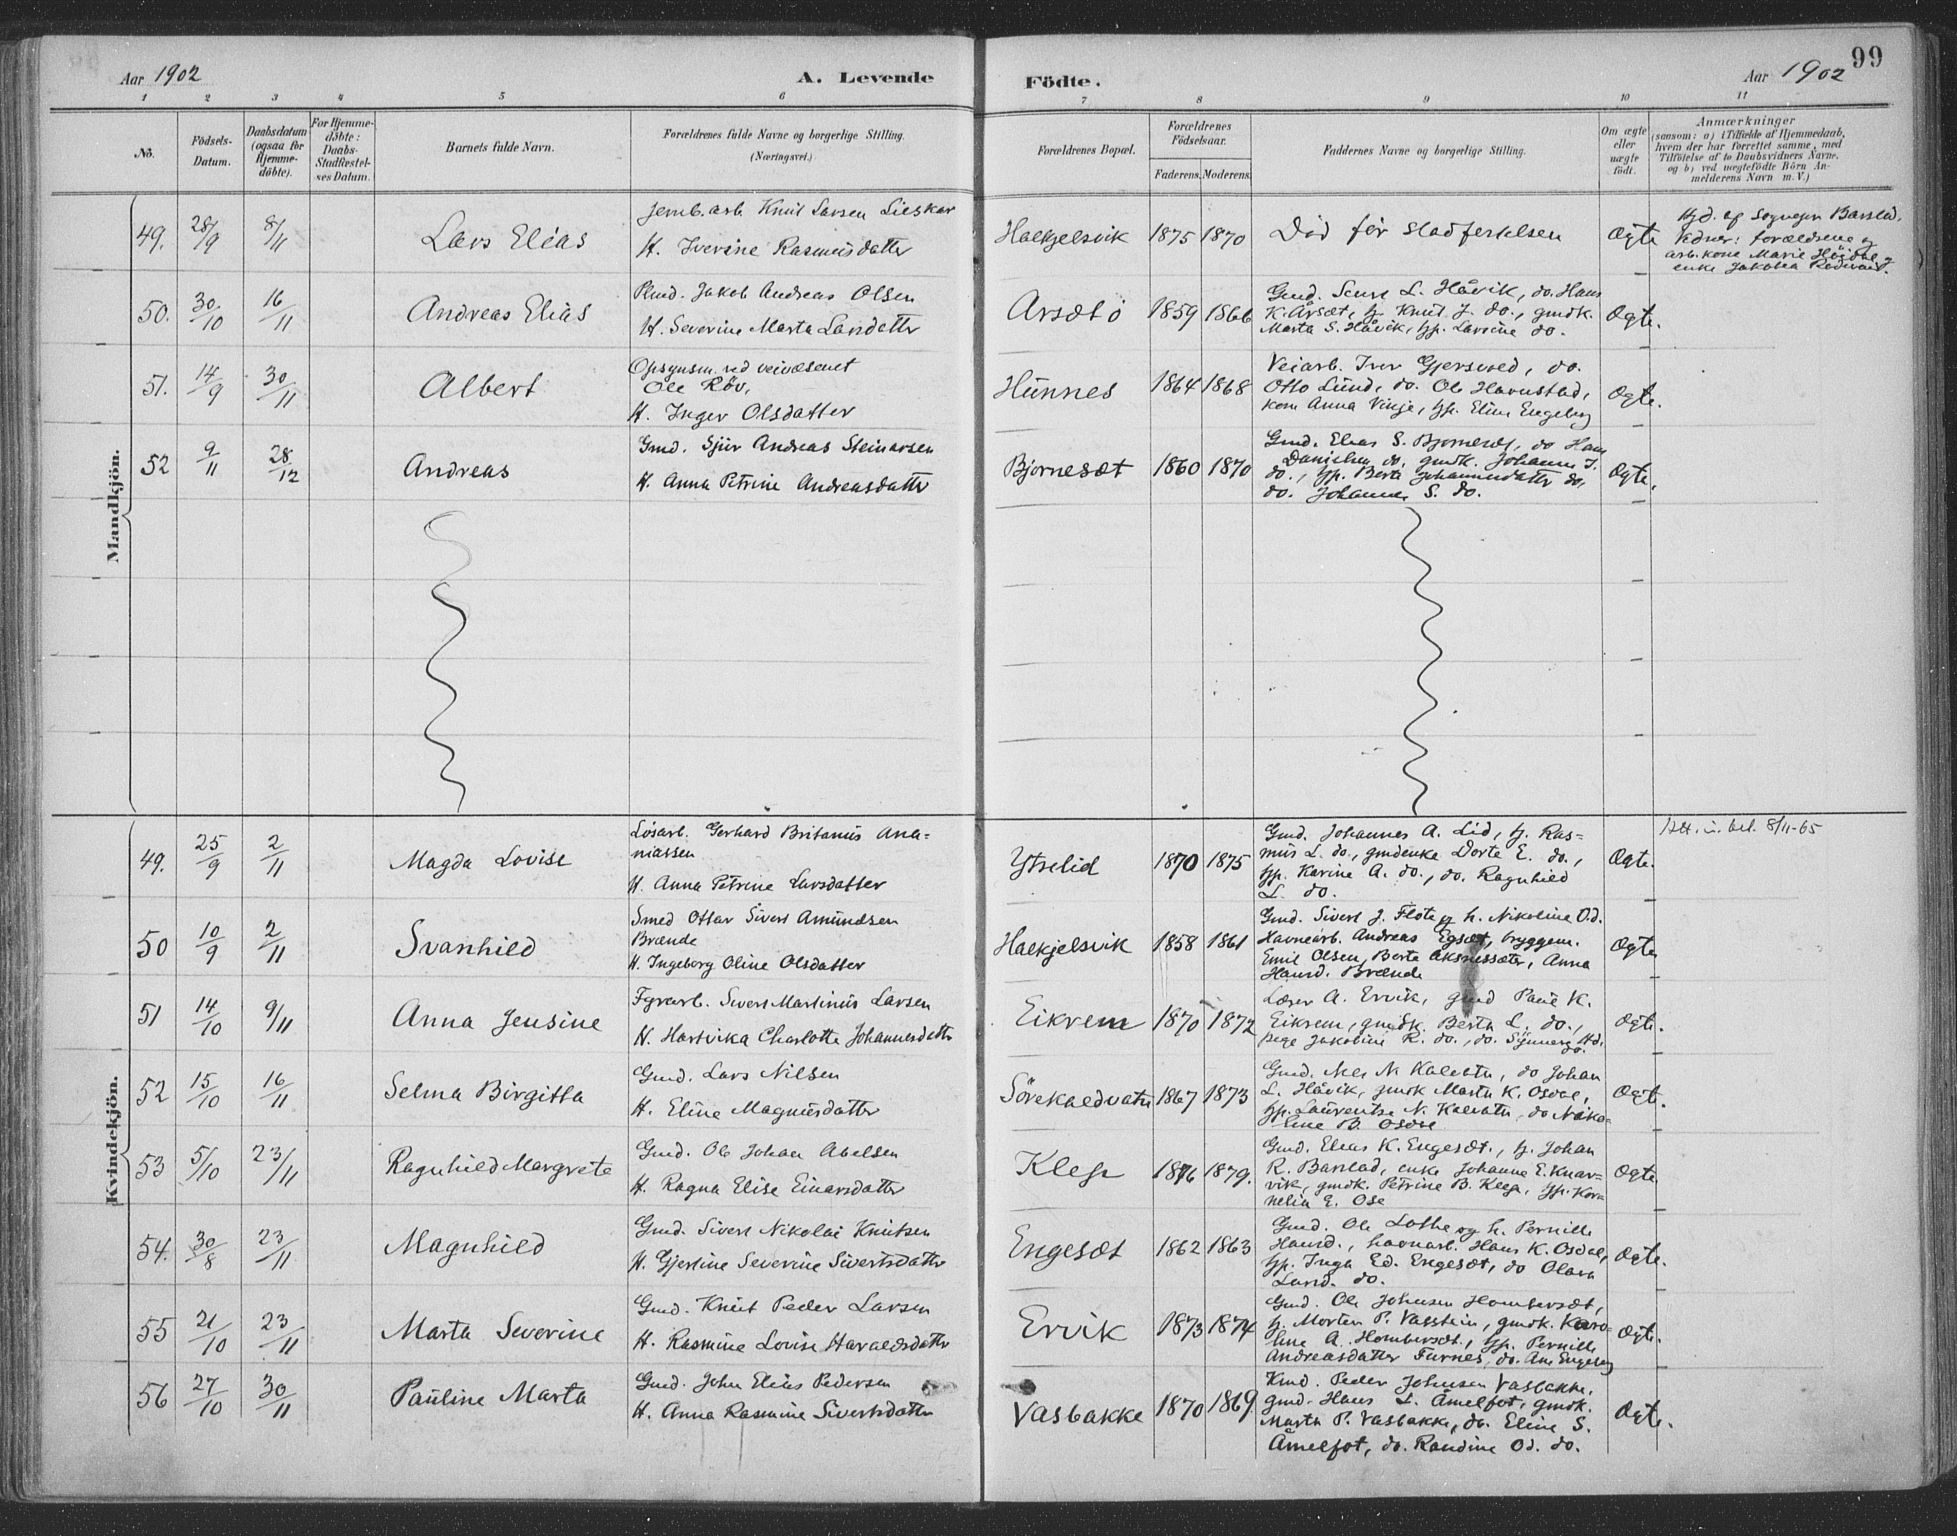 99
Aar 1902
A. Levende
Födte.
Aar 1902
1 2 3 4 5 6 7 8 9 10 11
No.
Födsels-
Datum.
Daabsdatum
(ogsaa for
Hjemme-
döbte).
For Hjemme-
döbte:
Daabs-
Stadfæstel-
ses Datum.
Barnets fulde Navn.
Forældrenes fulde Navne og borgerlige Stilling.
(Næringsvei.)
Forældrenes Bopæl.
Forældrenes
Födselsaar.
Faderens. Moderens.
Faddernes Navne og borgerlige Stilling.
Om ægte
eller
uægte
födt.
Anmærkninger
(saasom: a) i Tilfælde af Hjemmedaab,
hvem der har forrettet samme, med
Tilföielse af to Daabsvidners Navne.
og b) ved uægtefödte Börn An-
melderens Navn m. V.)
Mandkjön.
49. 28/9 8/11 Lars Elias
Jernb.arb. Knut Larsen Lieskar
H. Iverine Rasmusdatter
Haekjelsvik 1875 1870
Död för stadfestelsen
Ogte
Hjd. af Sognepr. Barstad.
Vidner: forældrene og
arb. kone Marie
enke Jakobea
50. 30/10 16/11 Andreas Elias
Jakob Andreas Olsen
H. Severine Marta Larsdatter
Arsetö 1859 1866
Gmd. L. Håvik, do. Hans
K. Årset, Knut J. do., gmdk.
Marta S. Håvik, pp. Larsine do.
Ogte.
51. 14/9 30/11 Albert
Opsynsm. ved veivæsenet
Ole Röv,
H. Inger Olsdatter
Hunnes 1864 1868
Veiarb. Iver Gjersvod, do.
Otto Lund, do. Ole Havnstad,
kone Anna Vinje, pp. Eline Engeberg
Ogte.
52 9/11 28/12 Andreas
Gmd. Sjur Andreas Steinarsen
H. Anna Petrine Andreasdatter
Bjornesæt 1860 1870
Gmd. Elias S. Bjorneset, do Hans
Danielsen do, gmdk. Johanne J.
do., pp. Berte Johannesdatter do,
do. Johanne S. do.
Ogte.
Kvindekjön.
49. 25/9 2/11 Magda Lovise
Lösarb. Gerhard Britanus Ana-
niassen
H. Anna Petrine Larsdatter
Ytrelid 1870 1875
Gmd. Johannes A. Lid, Ras-
mus L. do., gmdenke Dorte E. do.,
pp. Karine A. do., do. Ragnhild
L. do.
Ogte.
Att. u. bet. 8/11-65
50 10/9 2/11 Svanhild
Smed Ottar Sivert Amundsen
Brende
H. Ingeborg Oline Olsdatter
Haekjelsvik 1858 1861
Gmd. Sivert J. Flote og h. Nikoline O.d.
Havnearb. Andreas Egset, bryggem.
Emil Olsen, Berte Aksnessæter, Anna
Hansd. Brænde
Ogte
51 14/10 9/11 Anna Jensine
Fyrarb. Sivert Martinus Larsen
H. Hartvika Charlotte Johannesdatter
Eikrem 1870 1872
Lærer A. Ervik, gmd Paul K.
Eikrem, gmdk. Berta L. do.,
pige Jakobine R. do., do.
do.
Ogte.
52 15/10 16/11 Selma Birgitta
Gmd. Lars Nilsen
H. Eline Magnusdatter
Sörekaldvatn 1867 1873
Gmd. Nils N. Kalvatn, do Johan
L. Håvik, gmdk Marta K. Osdal,
pp. Laurentse N. Kalvatn, do Niko-
line B. Osdal
Ogte.
53 5/10 23/11 Ragnhild Margrete
Gmd. Ole Johan Abelsen
H. Ragna Elise Einarsdatter
Klep 1876 1879.
Gmd. Elias K. Engeset., Johan
R. Barstad, enke Johanne E. Knar-
vik, gmdk. Petrine B. Klep, pp. Kor-
nelia E. Ose
Ogte.
54. 30/8 23/11 Magnhild
Gmd. Sivert Nikolai Knutsen
H. Gjertine Severine Sivertsdatter
Engeset 1862 1863
Gmd. Ole Lothe og h. Pernille
Hansd., havnarb. Hans K. Osdal,
pp. Inga Ed. Engeset, do Olava
Larsd. do.
Ogte.
55 21/10 23/11 Marta Severine
Gmd. Knut Peder Larsen
H. Rasmine Lovise Haraldsdatter
Ervik 1873 1874
Gmd. Ole Johnsen Homberset,
Morten P. Vasstein, gmdk. Karo-
line A. Homberset., pp. Pernille
Andreasdatter Furnes, do. Ane
Ogte.
56 27/10 30/11 Pauline Marta
Gmd. John Elias Pedersen
H. Anna Rasmine Sivertsdatter
Vasbakke 1870 1869
Peder Johnsen Vasbakke,
gmd. Hans L. Åmelfot, gmdk.
Marta P. Vasbakke, do. Eline S.
Åmelfot, do. Randine O.d. do.
Ogte.